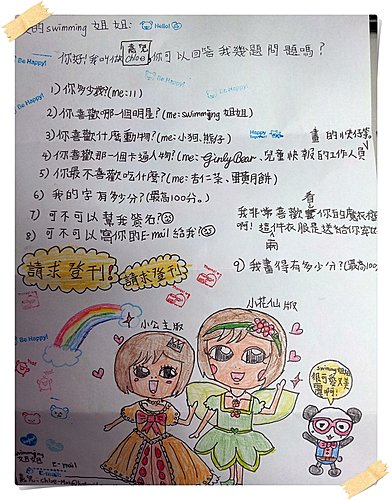 的swimming 姐姐:
Hello!
你好!我叫做Chloe,你可以回答我幾題問題嗎?
Be Happy!
1)你多少歲?(me:11)
2)你喜歡哪一個明星?(me:swimming 姐姐)
3)你喜歡什麼動物?(me:小狗、熊仔)
4)你喜歡那一個卡通人物?(me:GinlyBear、兒童快報的工作人員
畫的
5)你最不喜歡吃什麼?(me:杏仁茶、雙黃月餅)
6)我的字有多少分?(最高100分。)
7)可不可以幫我簽名?
8)可不可以寫你的E-mail給我?
我非常喜歡看你的魔衣櫥
啊!這件衣服是送給你
9)我畫得有多少分?(最高100
請求登刊!
請求登刊
Be Happy!
小公主版
小花仙版
swimming姐姐
很可愛
啊!
E-mail